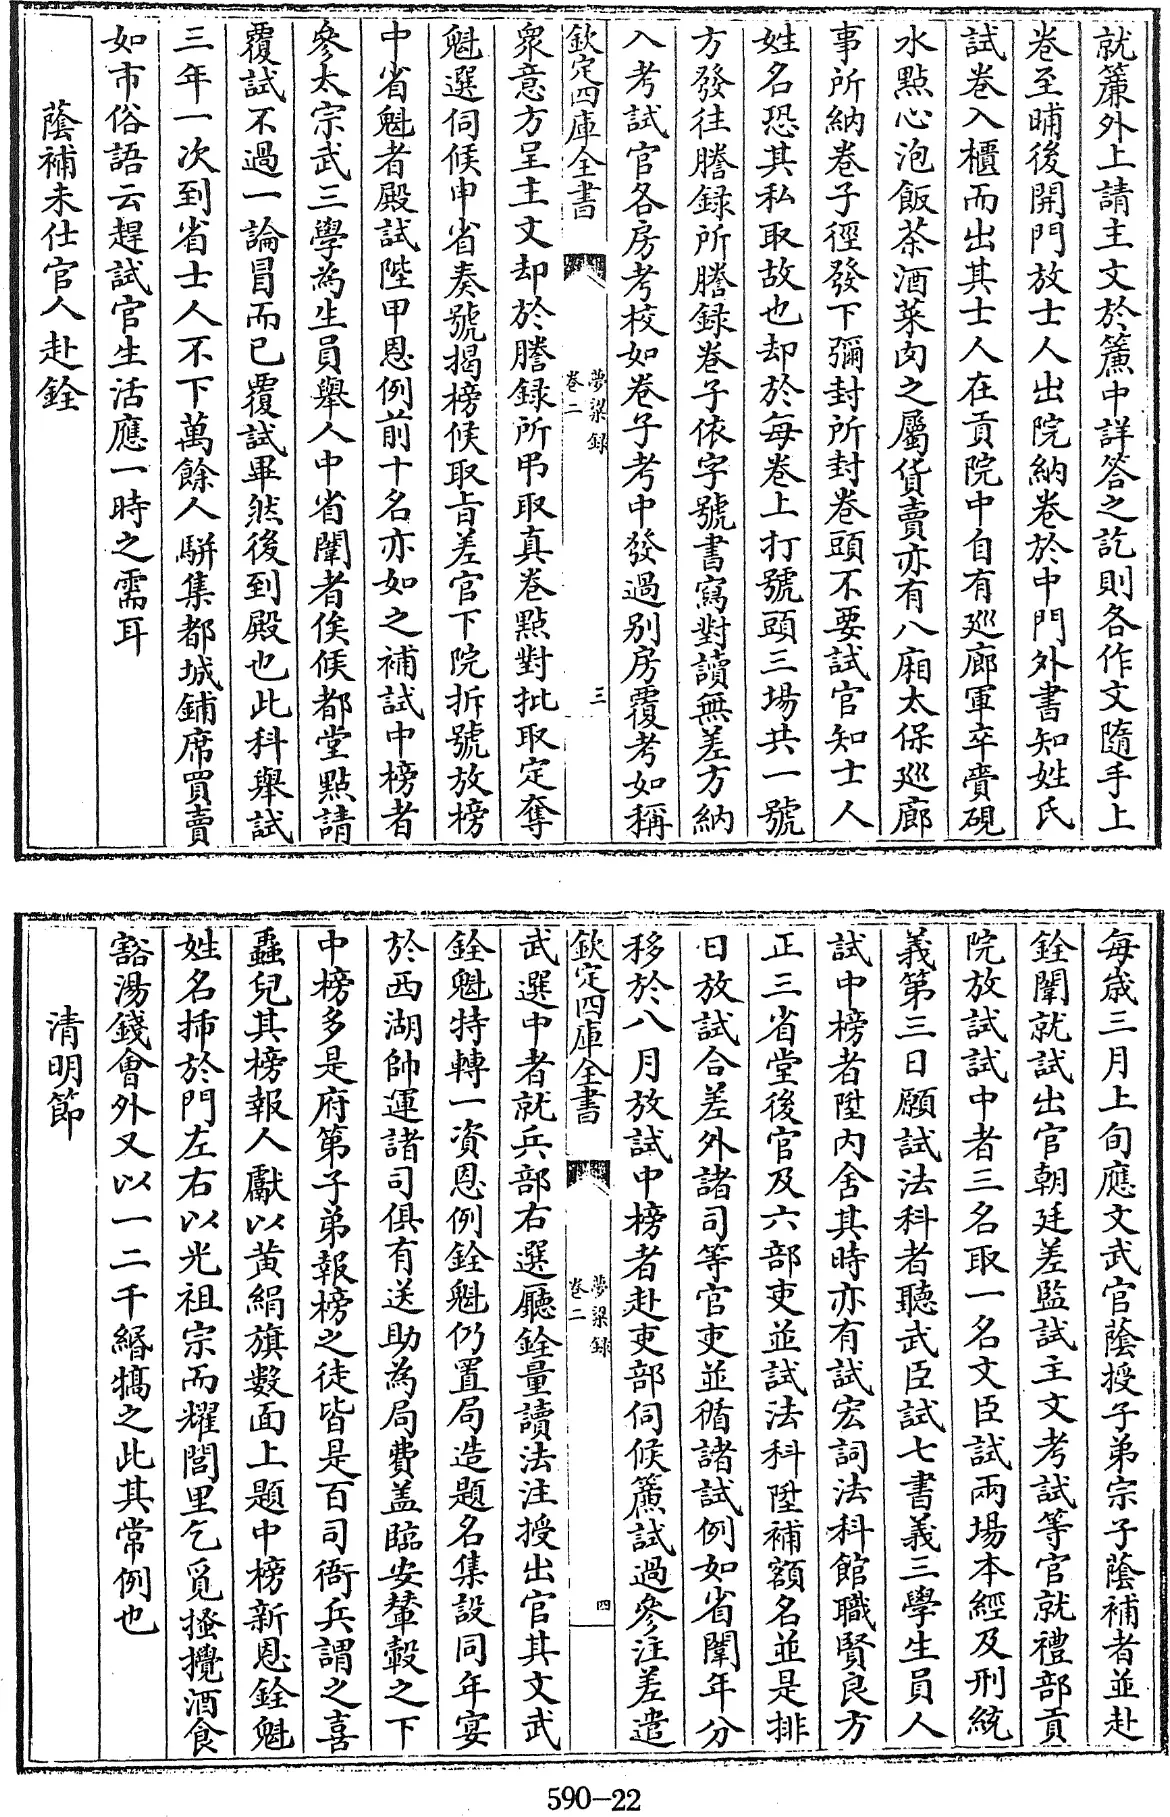 就簾外上請主文於簾中詳答之訖則各作文隨手上
卷至晡後開門放士人出院納卷於中門外書知姓氏
試卷入櫃而出其士人在貢院中自有廵廊軍卒賫硯
水點心泡飯茶酒菜肉之屬貨賣亦有八廂太保廵廊
事所納卷子徑發下彌封所封卷頭不要試官知士人
姓名恐其私取故也却於每卷上打號頭三塲共一號
方發往謄録所謄録卷子依字號書寫對讀無差方納
入考試官各房考校如卷子考中發過别房覆考如稱
欽定四庫全書
夢粱録
卷二
三
衆意方呈主文却於謄録所弔取真卷點對批取定奪
魁選伺候申省奏號揭榜候取㫖差官下院拆號放榜
中省魁者殿試陛甲恩例前十名亦如之補試中榜者
參太宗武三學為生員舉人中省闈者俟候都堂點請
覆試不過一論冒而已覆試畢然後到殿也此科舉試
三年一次到省士人不下萬餘人駢集都城鋪席買賣
如市俗語云趕試官生活應一時之需耳
蔭補未仕官人赴銓
每歳三月上旬應文武官蔭授子弟宗子蔭補者並赴
銓闈就試出官朝廷差監試主文考試等官就禮部貢
院放試試中者三名取一名文臣試兩場本經及刑統
義第三日願試法科者聽武臣試七書義三學生員人
試中榜者陞内舍其時亦有試宏詞法科館職賢良方
正三省堂後官及六部吏並試法科陞補額名並是排
日放試合差外諸司等官吏並循諸試例如省闈年分
移於八月放試中榜者赴吏部伺候簾試過參注差遣
欽定四庫全書
夢粱録
卷二
四
武選中者就兵部右選廳銓量讀法注授出官其文武
銓魁特轉一資恩例銓魁仍置局造題名集設同年宴
於西湖帥運諸司俱有送助為局費盖臨安輦轂之下
中榜多是府第子弟報榜之徒皆是百司衙兵謂之喜
蟲兒其榜報人獻以黄絹旗數面上題中榜新恩銓魁
姓名揷於門左右以光祖宗而耀閭里乞覓搔攪酒食
豁湯錢會外又以一二千緡犒之此其常例也
清明節
590-22